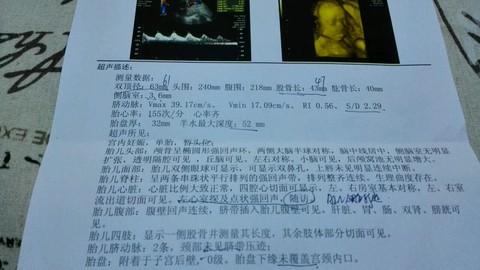 超声描述:
测量数据: 61 47
双顶径: 63mm 头围: 240mm 腹围: 218mm 股骨长: 43mm 肱骨长: 40mm
侧脑室: 3.6mm
脐动脉: Vmax 39.17cm/s, Vmin 17.09cm/s, RI 0.56, S/D 2.29
胎心率: 155次/分 心率齐
胎盘厚: 32mm 羊水最大深度: 52 mm
超声所见:
宫内妊娠, 单胎, 臀头位:
胎儿头部: 颅骨呈椭圆形强回声环, 两侧大脑半球对称, 脑中线居中, 侧脑室无明显
扩张, 透明隔腔可见, 丘脑可见, 左右对称, 小脑可见, 后颅窝池无明显增大。
胎儿面部: 胎儿双侧眼球可显示, 可显示双鼻孔, 上唇未见明显连续中断。
胎儿脊柱: 呈两条串珠状平行排列的强回声带, 排列整齐连续, 生理曲度存在。
胎儿心脏: 心脏比例大致正常, 四腔心切面可显示, 左、右房室基本对称, 左、右室
流出道切面可见。左心室探及点状强回声。随访
胎儿腹部: 腹壁回声连续, 脐带插入胎儿腹壁可见, 肝脏、胃、肠、双肾、膀胱可
见。
胎儿四肢: 显示一侧股骨并测量其长度, 其余肢体部分切面可见。
胎儿脐动脉: 2条, 颈部未见脐带压迹:
胎盘: 附着于子宫后壁, 0级。胎盘下缘未覆盖宫颈内口。